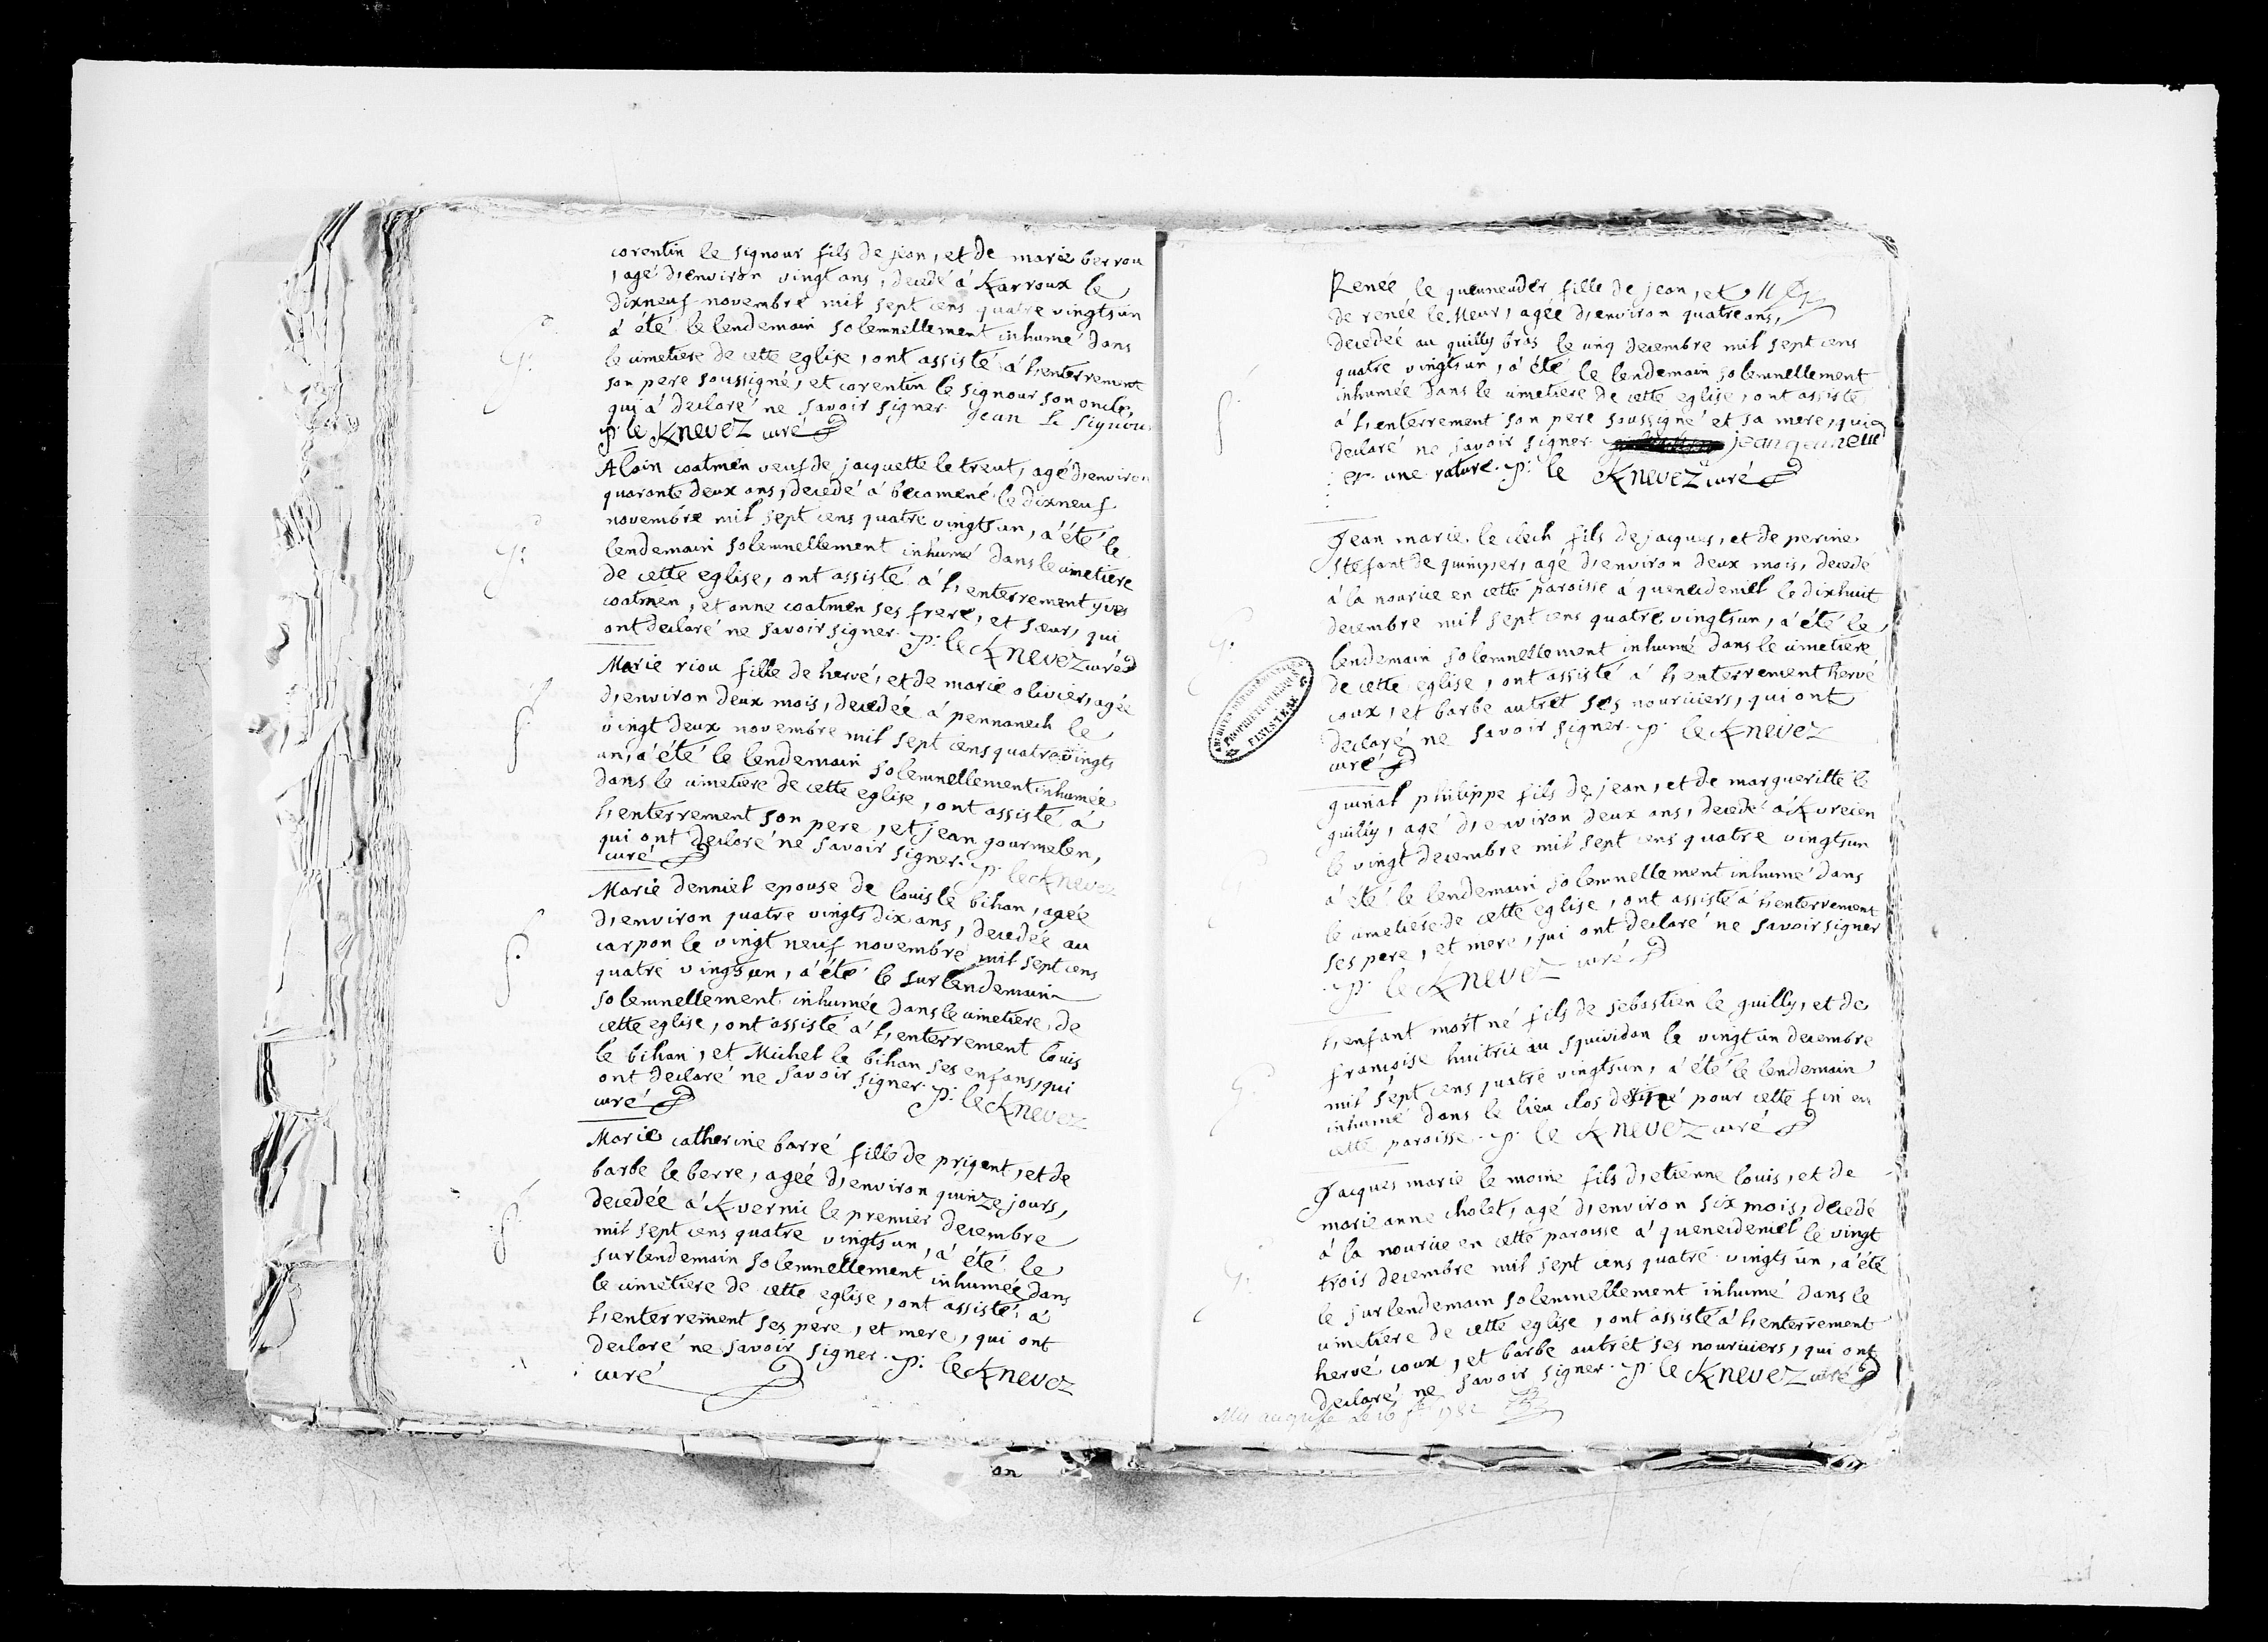 corentin le signour fils de jean, et de marie berrou
, agé d'environ vingt ans, decedé á Karroux le
dixneuf novembre mil sept cens quatre vingtsun
á été le lendemain solemnellement inhumé dans
le cimetiere de cette eglise, ont assisté á l'enterrement
son pere soussigné, et corentin le signour son oncle,
qui á declaré ne savoir signer. jean le Signour
p. le Knevez curé
Alain coatmen veuf de jacquette le treut, agé d'environ
quarante deux ans, decedé á becamené le dixneuf
novembre mil sept cens quatre vingtsun, á été le
lendemain solemnellement inhumé dans le cimetiere
de cette eglise, ont assisté á l'enterrement yves
coatmen, et anne coatmen ses frere, et sœur, qui
ont declaré ne savoir signer. p: le Knevez curé
Marie riou fille de hervé, et de marie olivier, agée
d'environ deux mois, decedée á pennanech le
vingt deux novembre mil sept cens quatre vingts
un, á été le lendemain solemnellement inhumée
dans le cimetiere de cette eglise, ont assisté á
l'enterrement son pere, et jean gourmelen,
qui ont declaré ne savoir signer. p. le Knevez
curé
Marie denniel epouse de louis le bihan, agée
d'environ quatre vingts dix ans, decedée au
carpon le vingt neuf novembre mil sept cens
quatre vingtsun, á été le surlendemain
solemnellement inhumée dans le cimetiere de
cette eglise, ont assisté á l'enterrement louis
le bihan, et Michel le bihan ses enfans, qui
ont declaré ne savoir signer. p: le Knevez
curé
Marie catherine barré fille de prigent, et de
barbe le berre, agée d'environ quinze jours,
decedée á Kvernic le premier decembre
mil sept cens quatre vingtsun, á été le
surlendemain solemnellement inhumée dans
le cimetiere de cette eglise, ont assisté á
l'enterrement ses pere, et mere, qui ont
declaré ne savoir signer. p: le Knevez
curé
Renée le queuneuder fille de jean, et
de renée le Meur, agée d'environ quatre ans,
decedée au quilly bras le cinq decembre mil sept cens
quatre vingtsun, á été le lendemain solemnellement
inhumée dans le cimetiere de cette eglise, ont assisté
á l'enterrement son pere soussigné et sa mere, qui a
declaré ne savoir signer.
une rature. p: le Knevez curé
Jean marie le clech fils de jacques, et de perine
stefant de quimper, agé d'environ deux mois, decedé
á la nourice en cette paroisse á queneideniel le dixhuit
decembre mil sept cens quatre vingtsun, á été le
lendemain solemnellement inhumé dans le cimetiere
de cette eglise, ont assisté á l'enterrement hervé
coux, et barbe autret ses nouriciers, qui ont
declaré ne savoir signer. p. le Knevez
curé
ARCHIVES DEPARTEMENTALES
PROPRIETE PUBLIQUE
FINISTERE
guinal philippe fils de jean, et de margueritte le
quilly, agé d'environ deux ans, decedé á Kvreien
le vingt decembre mil sept cens quatre vingtsun
á été le lendemain solemnellement inhumé dans
le cimetiere de cette eglise, ont assisté á l'enterrement
ses pere, et mere, qui ont declaré ne savoir signer
p. le Knevez curé
l'enfant mort né fils de sebastien le quilly, et de
françoise huitric au squividan le vingt un decembre
mil sept cens quatre vingtsun, á été le lendemain
inhumé dans le lieu clos destiné pour cette fin en
cette paroisse. p. le Knevez curé
Jacques marie le moine fils d'etienne louis, et de
marie anne cholet, agé d'environ six mois, decedé
á la nourice en cette paroisse á queneideniel le vingt
trois decembre mil sept cens quatre vingts un, á été
le surlendemain solemnellement inhumé dans le
cimetiere de cette eglise, ont assisté á l'enterrement
hervé coux, et barbe autret ses nouriciers, qui ont
declaré ne savoir signer. p le Knevez curé
an